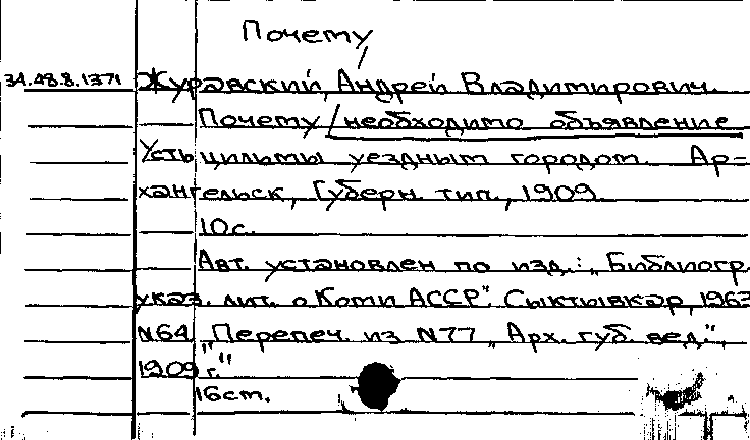 Почему
34.48.8.1371 Журавский, Андрей Владимирович.
Почему необходимо объявление
Усть цильмы уездным городом. Ар-
хангельск, Губерн. тип., 1909
10с.
Авт. установлен по изд.: „Библиогр.
указ. лит. о Коми АССР". Сыктывкар, 1963
N64 „Перепеч. из N77 „Арх. губ. вед.",
1909 г."
16ст.